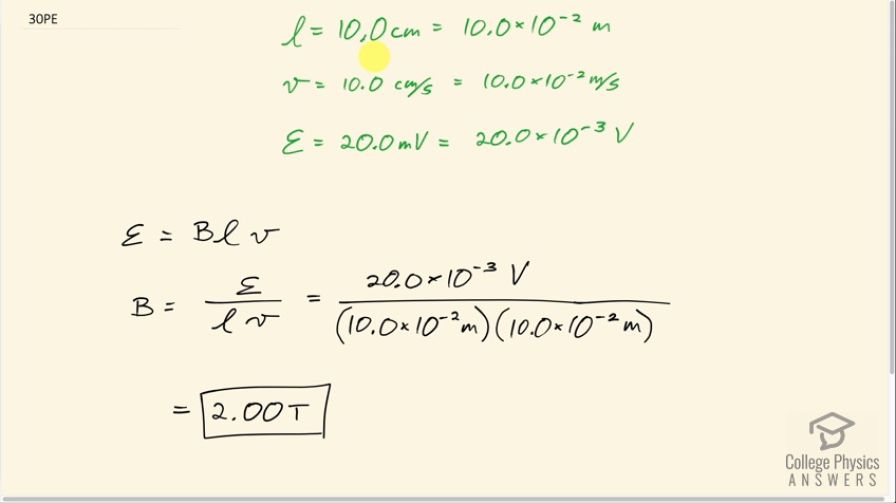 30PE
l = 10.0 cm = 10.0 × 10⁻² m
v = 10.0 cm/s = 10.0 × 10⁻² m/s
ε = 20.0 mV = 20.0 × 10⁻³ V
ε = B l v
B = ε / l v = 20.0 × 10⁻³ V / (10.0 × 10⁻² m)(10.0 × 10⁻² m)
= 2.00 T
College Physics
ANSWERS